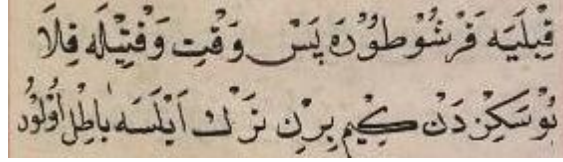 قِبْلَيَه قَرْشُو طُوْرَه بَسْ وَقْتِ وَقْتِيْلَه قِلَا
بُو سَكِزْدَنْ كِيمْ بِرِنِ تَرْكْ اَيْلَسَه بَاطِلْ اُوْلُوْرْ